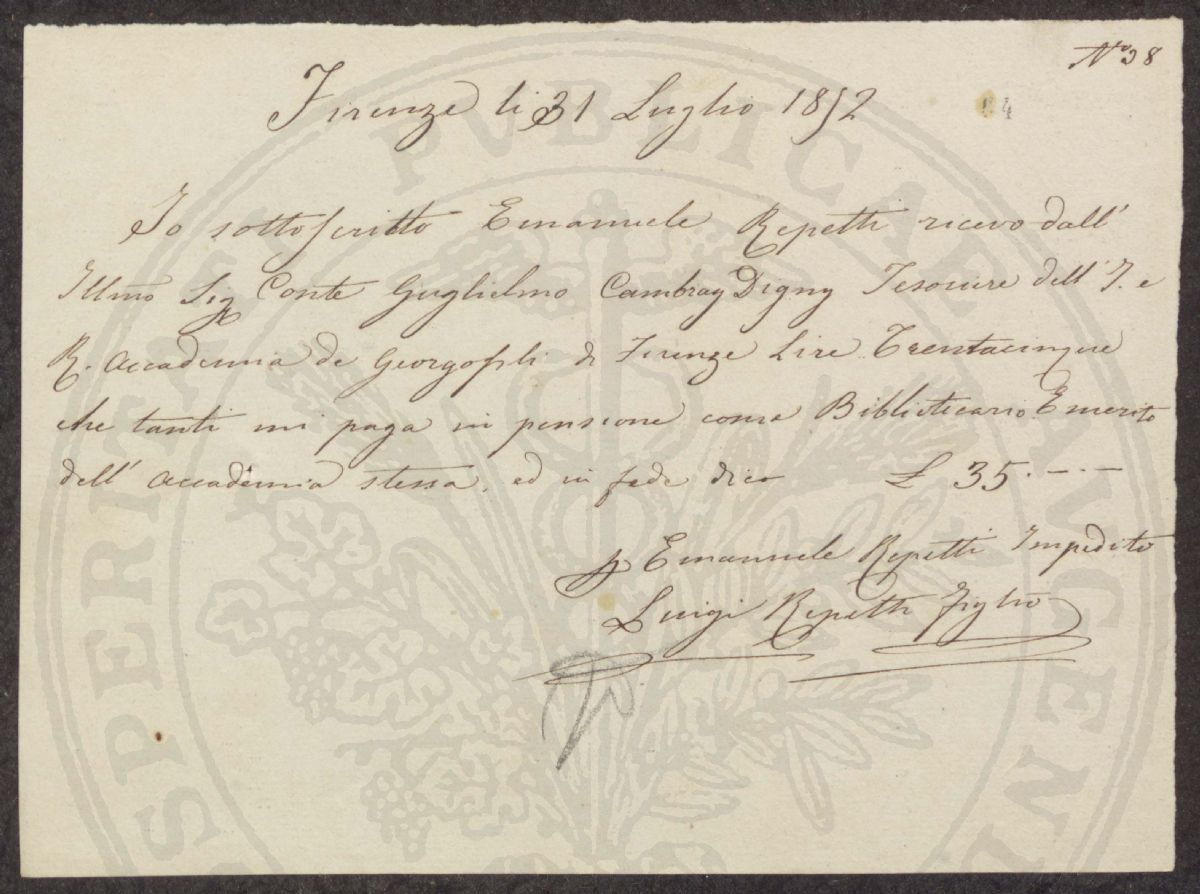 N° 38
84
Firenze li 31 Luglio 1852
Io sottoscritto Emanuele Repetti ricevo dall'
Illmo Sig Conte Guglielmo Cambray Digny Tesoriere dell' I. e
R. Accademia de Georgofili di Firenze Lire Trentacinque
che tanti mi paga in pensione come Bibliotecario Emerito
dell' Accademia stessa, ed in fede dico £ 35.-.-
p Emanuele Repetti Impedito
Luigi Repetti Figlio
PROSPERITATI PVBLICAE AVGENDAE